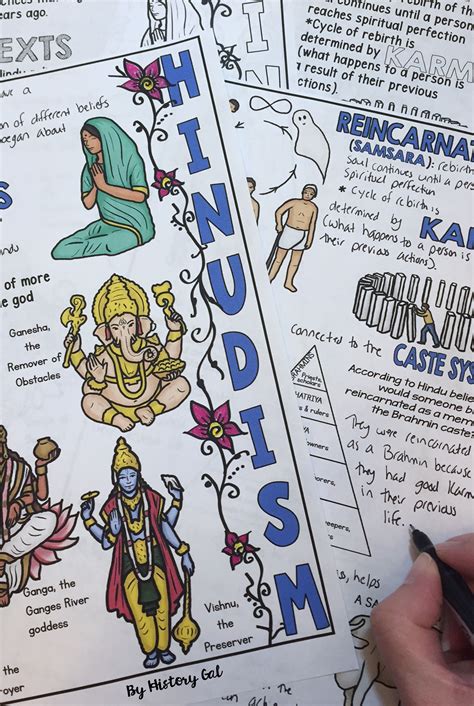 EXTS
years ago.
have a
on of different beliefs
began about
of more
he god
Ganesha,
the
Remover of
Obstacles
Ganga, the
Ganges River
goddess
Vishnu,
the
Preserver
HINDUISM
By History Gal
continues until a person
reaches spiritual perfection
*Cycle of rebirth is
determined by KARM
(what happens to a person is
a result of their previous
actions).
REINCARNAT
(SAMSARA): rebirth
soul continues until a pe
spiritual perfection
* Cycle of rebirth is
determined by
KA
(what happens to a person is
their previous actions).
Connected to the
CASTE SYS
According to Hindu belie
would someone
reincarnated as a mem
the Brahmin caste
They were reincarnated
as a Brahmin because
they had good Karm
in their previous
life.
RAHMINS
Priests,
scholars
HATRIYA
s & rulers
owners
keepers,
is, helps